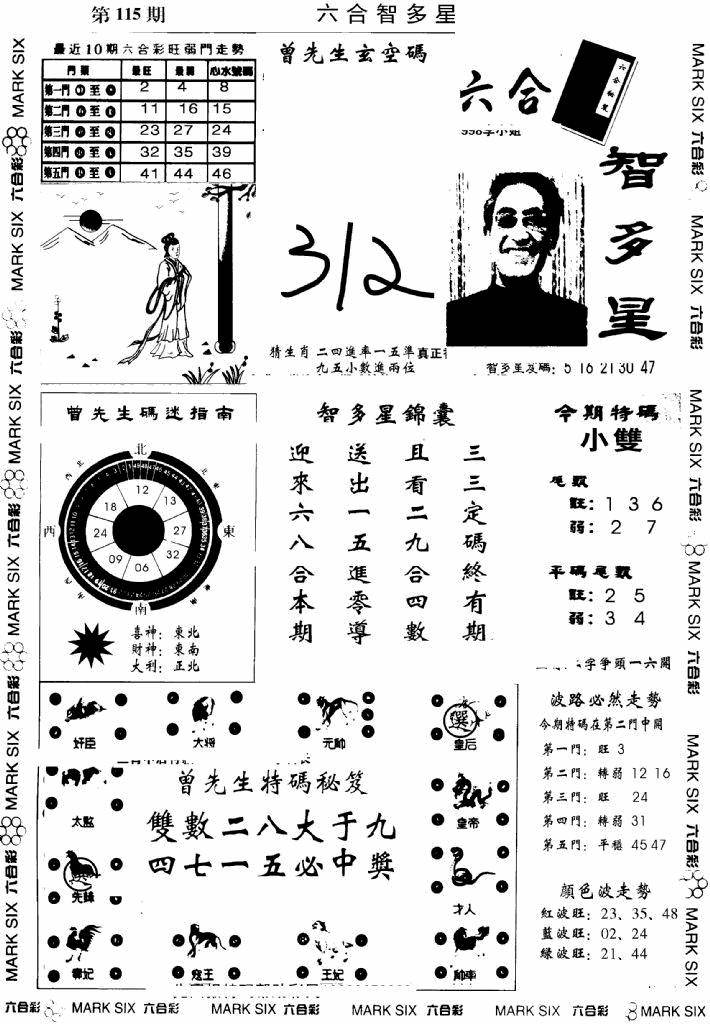 第115期
六合智多星
最近10期六合彩旺弱門走勢
門類 最旺 最弱 心水號碼
第一門 至 2 4 8
第二門 至 11 16 15
第三門 至 23 27 24
第四門 至 32 35 39
第五門 至 41 44 46
曾先生玄空碼
312
猜生肖 二四進率一五準真正
九五小數進兩位
六合
六合秘笈
智多星
智多星及碼: 5 16 21 30 47
曾先生碼迷指南
北
東
南
西
12
13
27
32
06
09
24
18
喜神: 東北
財神: 東南
大利: 正北
智多星錦囊
三三定碼終有期
且看二九合四數
送出一五進零導
迎來六八合本期
今期特碼
小雙
尾數
旺: 1 3 6
弱: 2 7
平碼尾數
旺: 2 5
弱: 3 4
字爭頭一六開
波路必然走勢
今期特碼在第二門中開
第一門: 旺 3
第二門: 轉弱 12 16
第三門: 旺 24
第四門: 轉弱 31
第五門: 平穩 45 47
顏色波走勢
紅波旺: 23、35、48
藍波旺: 02、24
綠波旺: 21、44
奸臣
大將
元帥
選
皇后
太監
皇帝
才人
曾先生特碼秘笈
雙數二八大于九
四七一五必中獎
王妃
MARK SIX 六合彩 MARK SIX 六合彩 MARK SIX 六合彩 MARK SIX 六合彩 MARK SIX 六合彩 MARK SIX
MARK SIX 六合彩 MARK SIX 六合彩 MARK SIX 六合彩 MARK SIX 六合彩 MARK SIX 六合彩 MARK SIX
六合彩 MARK SIX 六合彩 MARK SIX 六合彩 MARK SIX 六合彩 MARK SIX 六合彩 MARK SIX